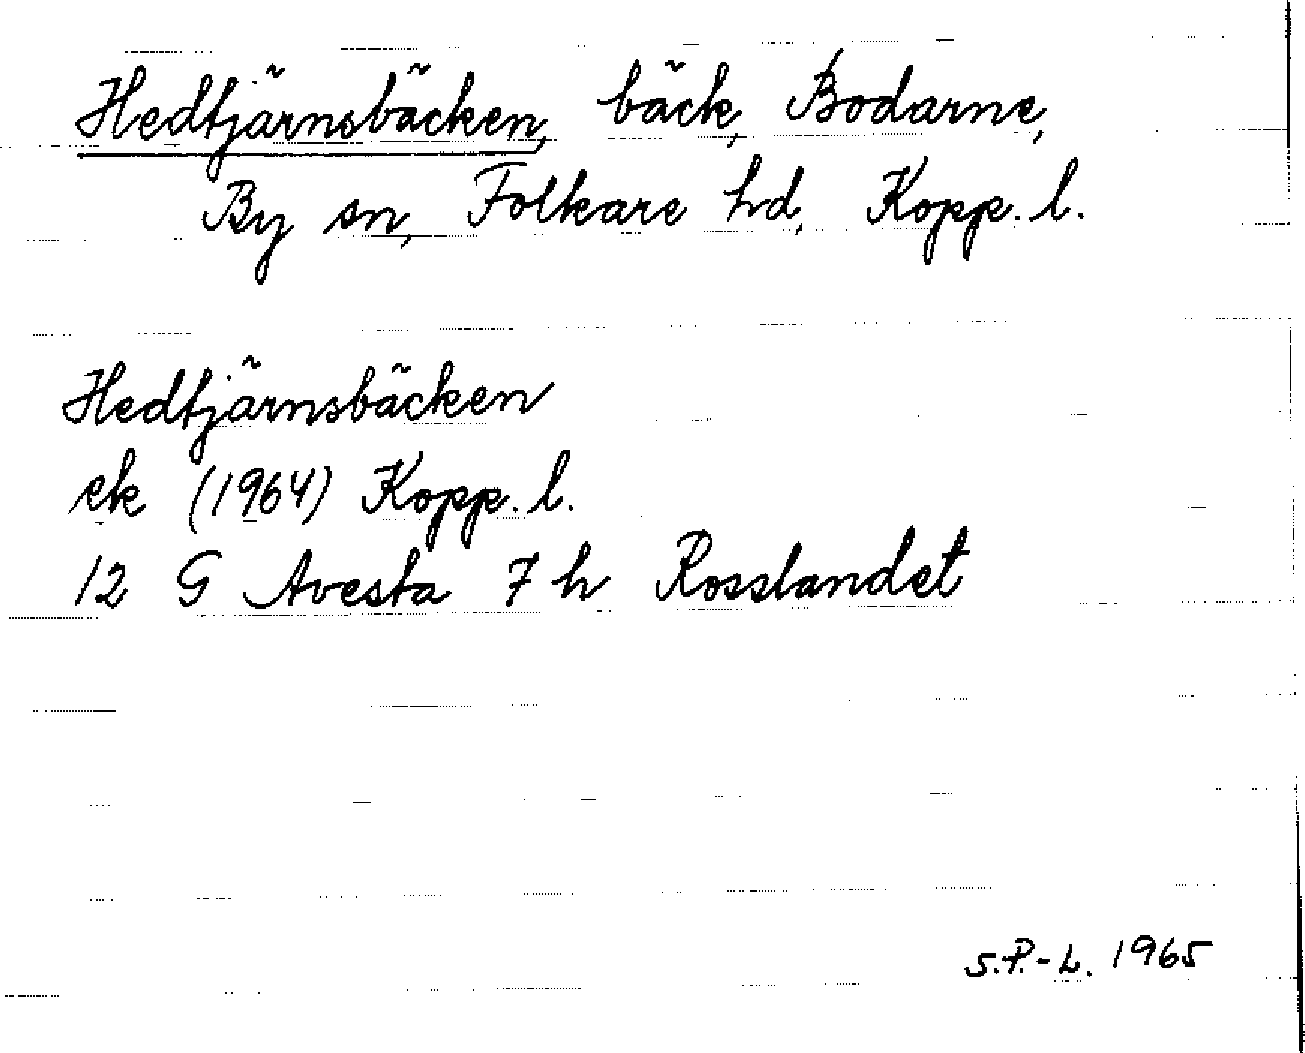 Hedtjärnsbäcken, bäck, Bodarne,
By sn, Folkare hd, Kopp. l.
Hedtjärnsbäcken
ek (1964) Kopp. l.
12 G Avesta 7 h Rosslandet
S.P.-L. 1965